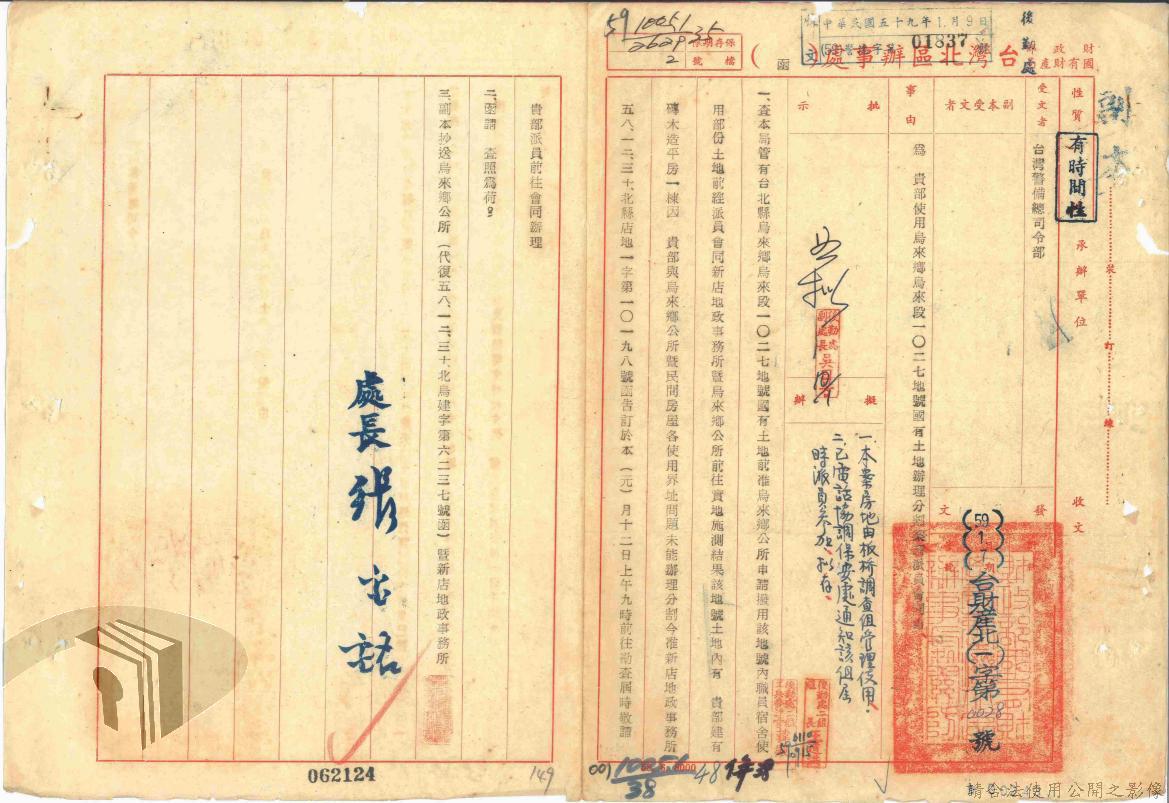 財政部
國有財產局
台灣北區辦事處(函)
後勤處
中華民國五十九年1月9日
(59)警後字第01837號
保存期限
檔號
59
10051
35
2629
2
副本
性質
有時間性
承辦單位
收文
裝
訂
線
受文者
台灣警備總司令部
副本受文者
發文
(59)(1)(7)台財產北(一)字第0028號
事由
為 貴部使用烏來鄉烏來段一○二七地號國有土地辦理分割
批示
擬辦
一、本案房地由板橋調查組管理使用。
二、已電話協調保安處通知該組屆
時派員參加、擬存、
一、查本局管有台北縣烏來鄉烏來段一○二七地號國有土地前准烏來鄉公所申請撥用該地號內職員宿舍使
用部份土地前經派員會同新店地政事務所暨烏來鄉公所前往實地施測結果該地號土地內有 貴部建有
磚木造平房一棟因 貴部與烏來鄉公所暨民間房屋各使用界址問題未能辦理分割今准新店地政事務所
五八、一二、三十北縣店地一字第一○一九八號函告訂於本(元)月十二日上午九時前往勘查屆時敬請
貴部派員前往會同辦理
二、函請 查照為荷。
三、副本抄送烏來鄉公所(代復五八、一二、三十、北烏建字第六二三七號函)暨新店地政事務所
處長張
062124
149
001
10051
38
48
請合法使用公開之影像